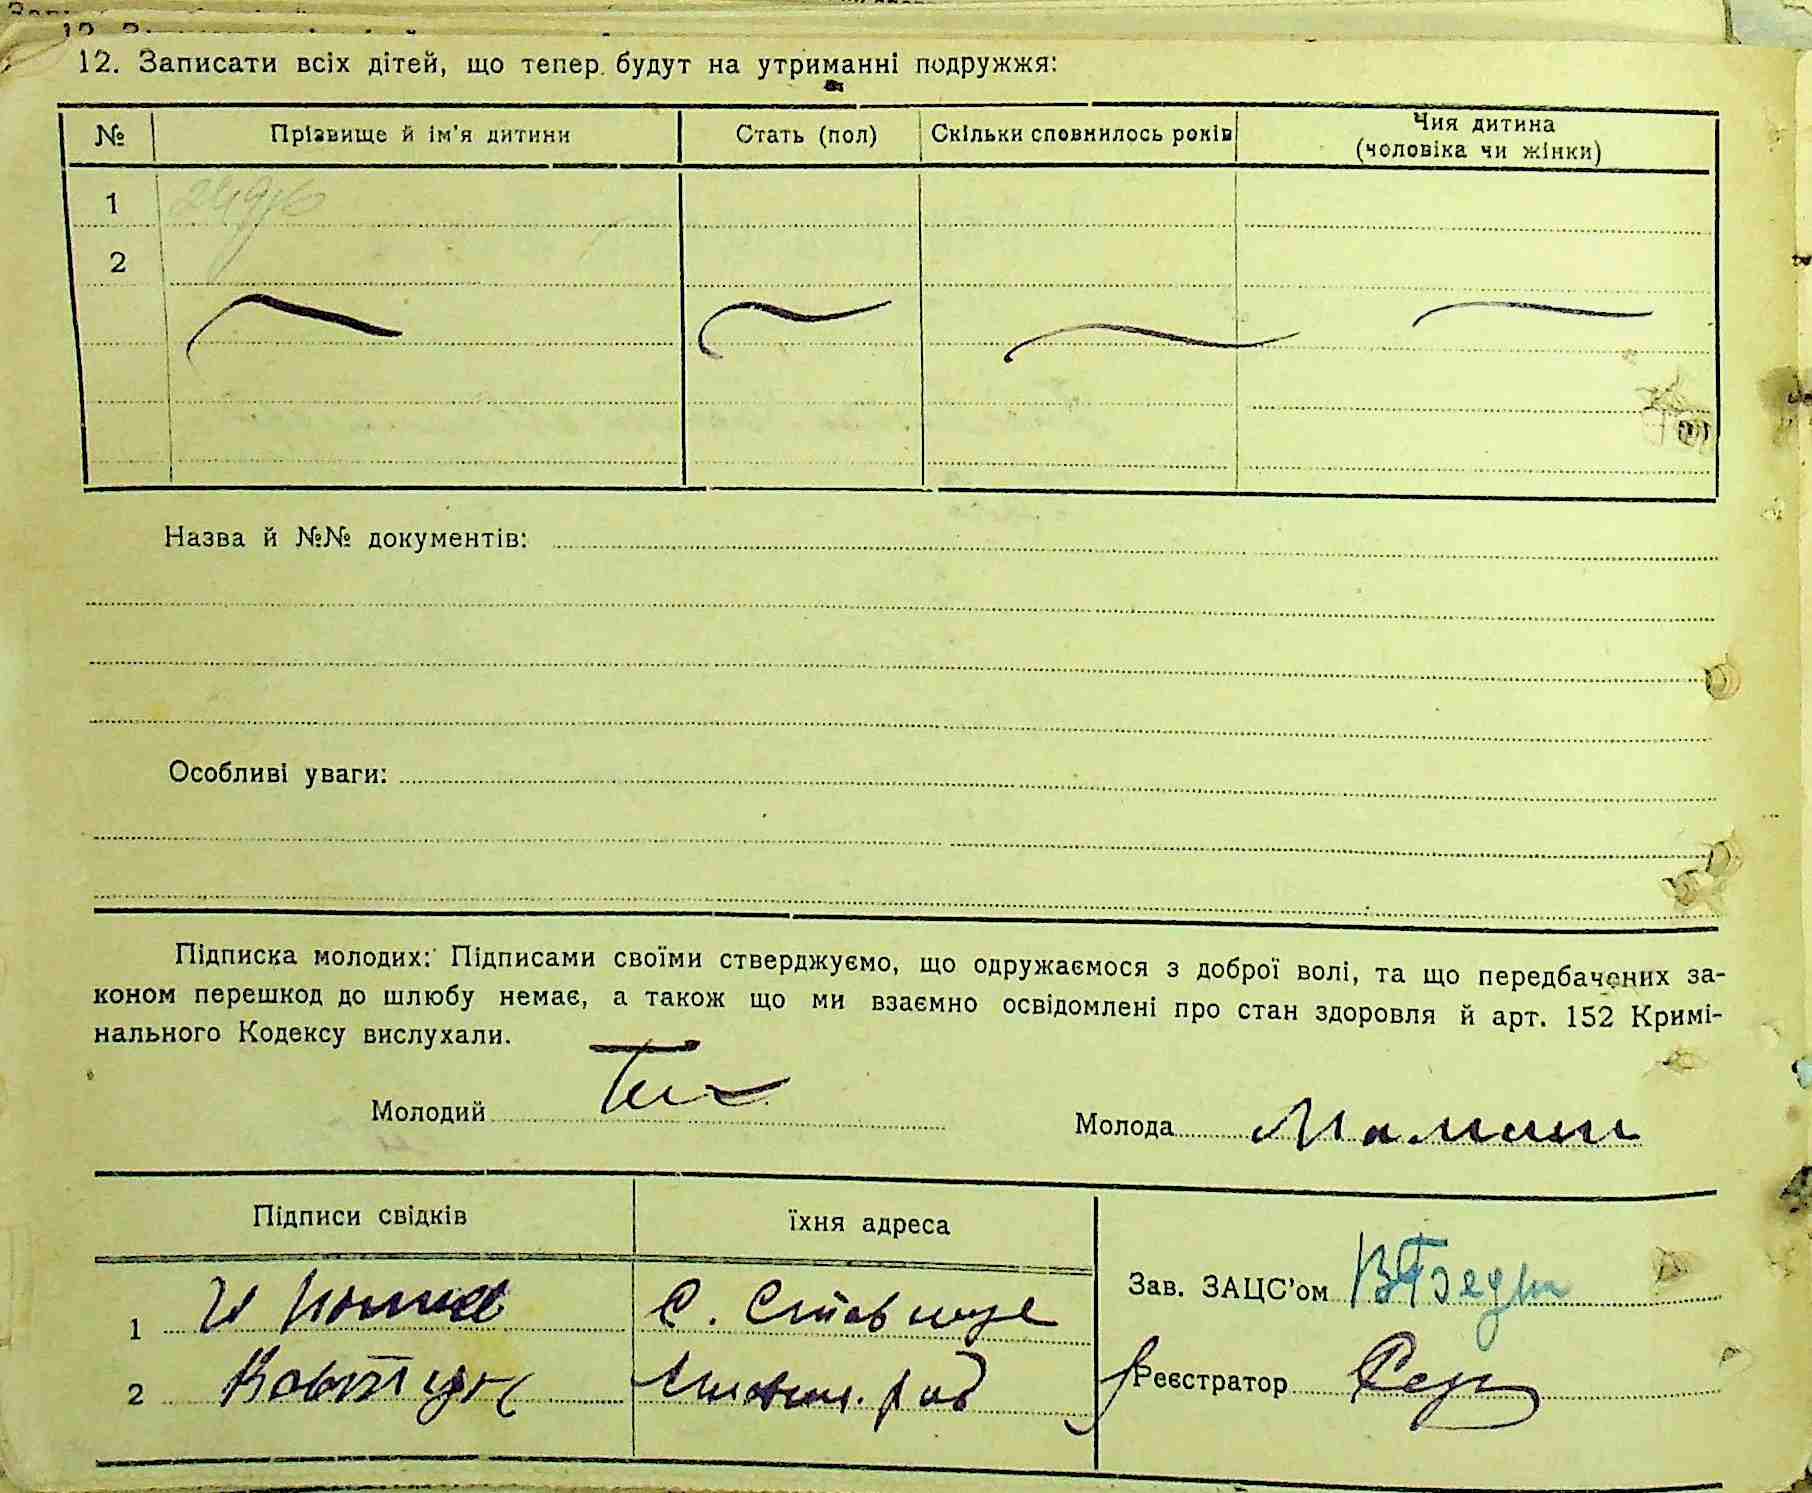 12. Записати всіх дітей, що тепер будут на утриманні подружжя:
№ Прізвище й ім'я дитини Стать (пол) Скільки сповнилось років Чия дитина
(чоловіка чи жінки)
1
2
Назва й №№ документів:
Особливі уваги:
Підписка молодих: Підписами своїми стверджуємо, що одружаємося з доброї волі, та що передбачених за-
коном перешкод до шлюбу немає, а також що ми взаємно освідомлені про стан здоровля й арт. 152 Кримі-
нального Кодексу вислухали.
Молодий
Молода
Підписи свідків їхня адреса
Зав. ЗАЦС'ом
1 С. Ставище
2
Реєстратор